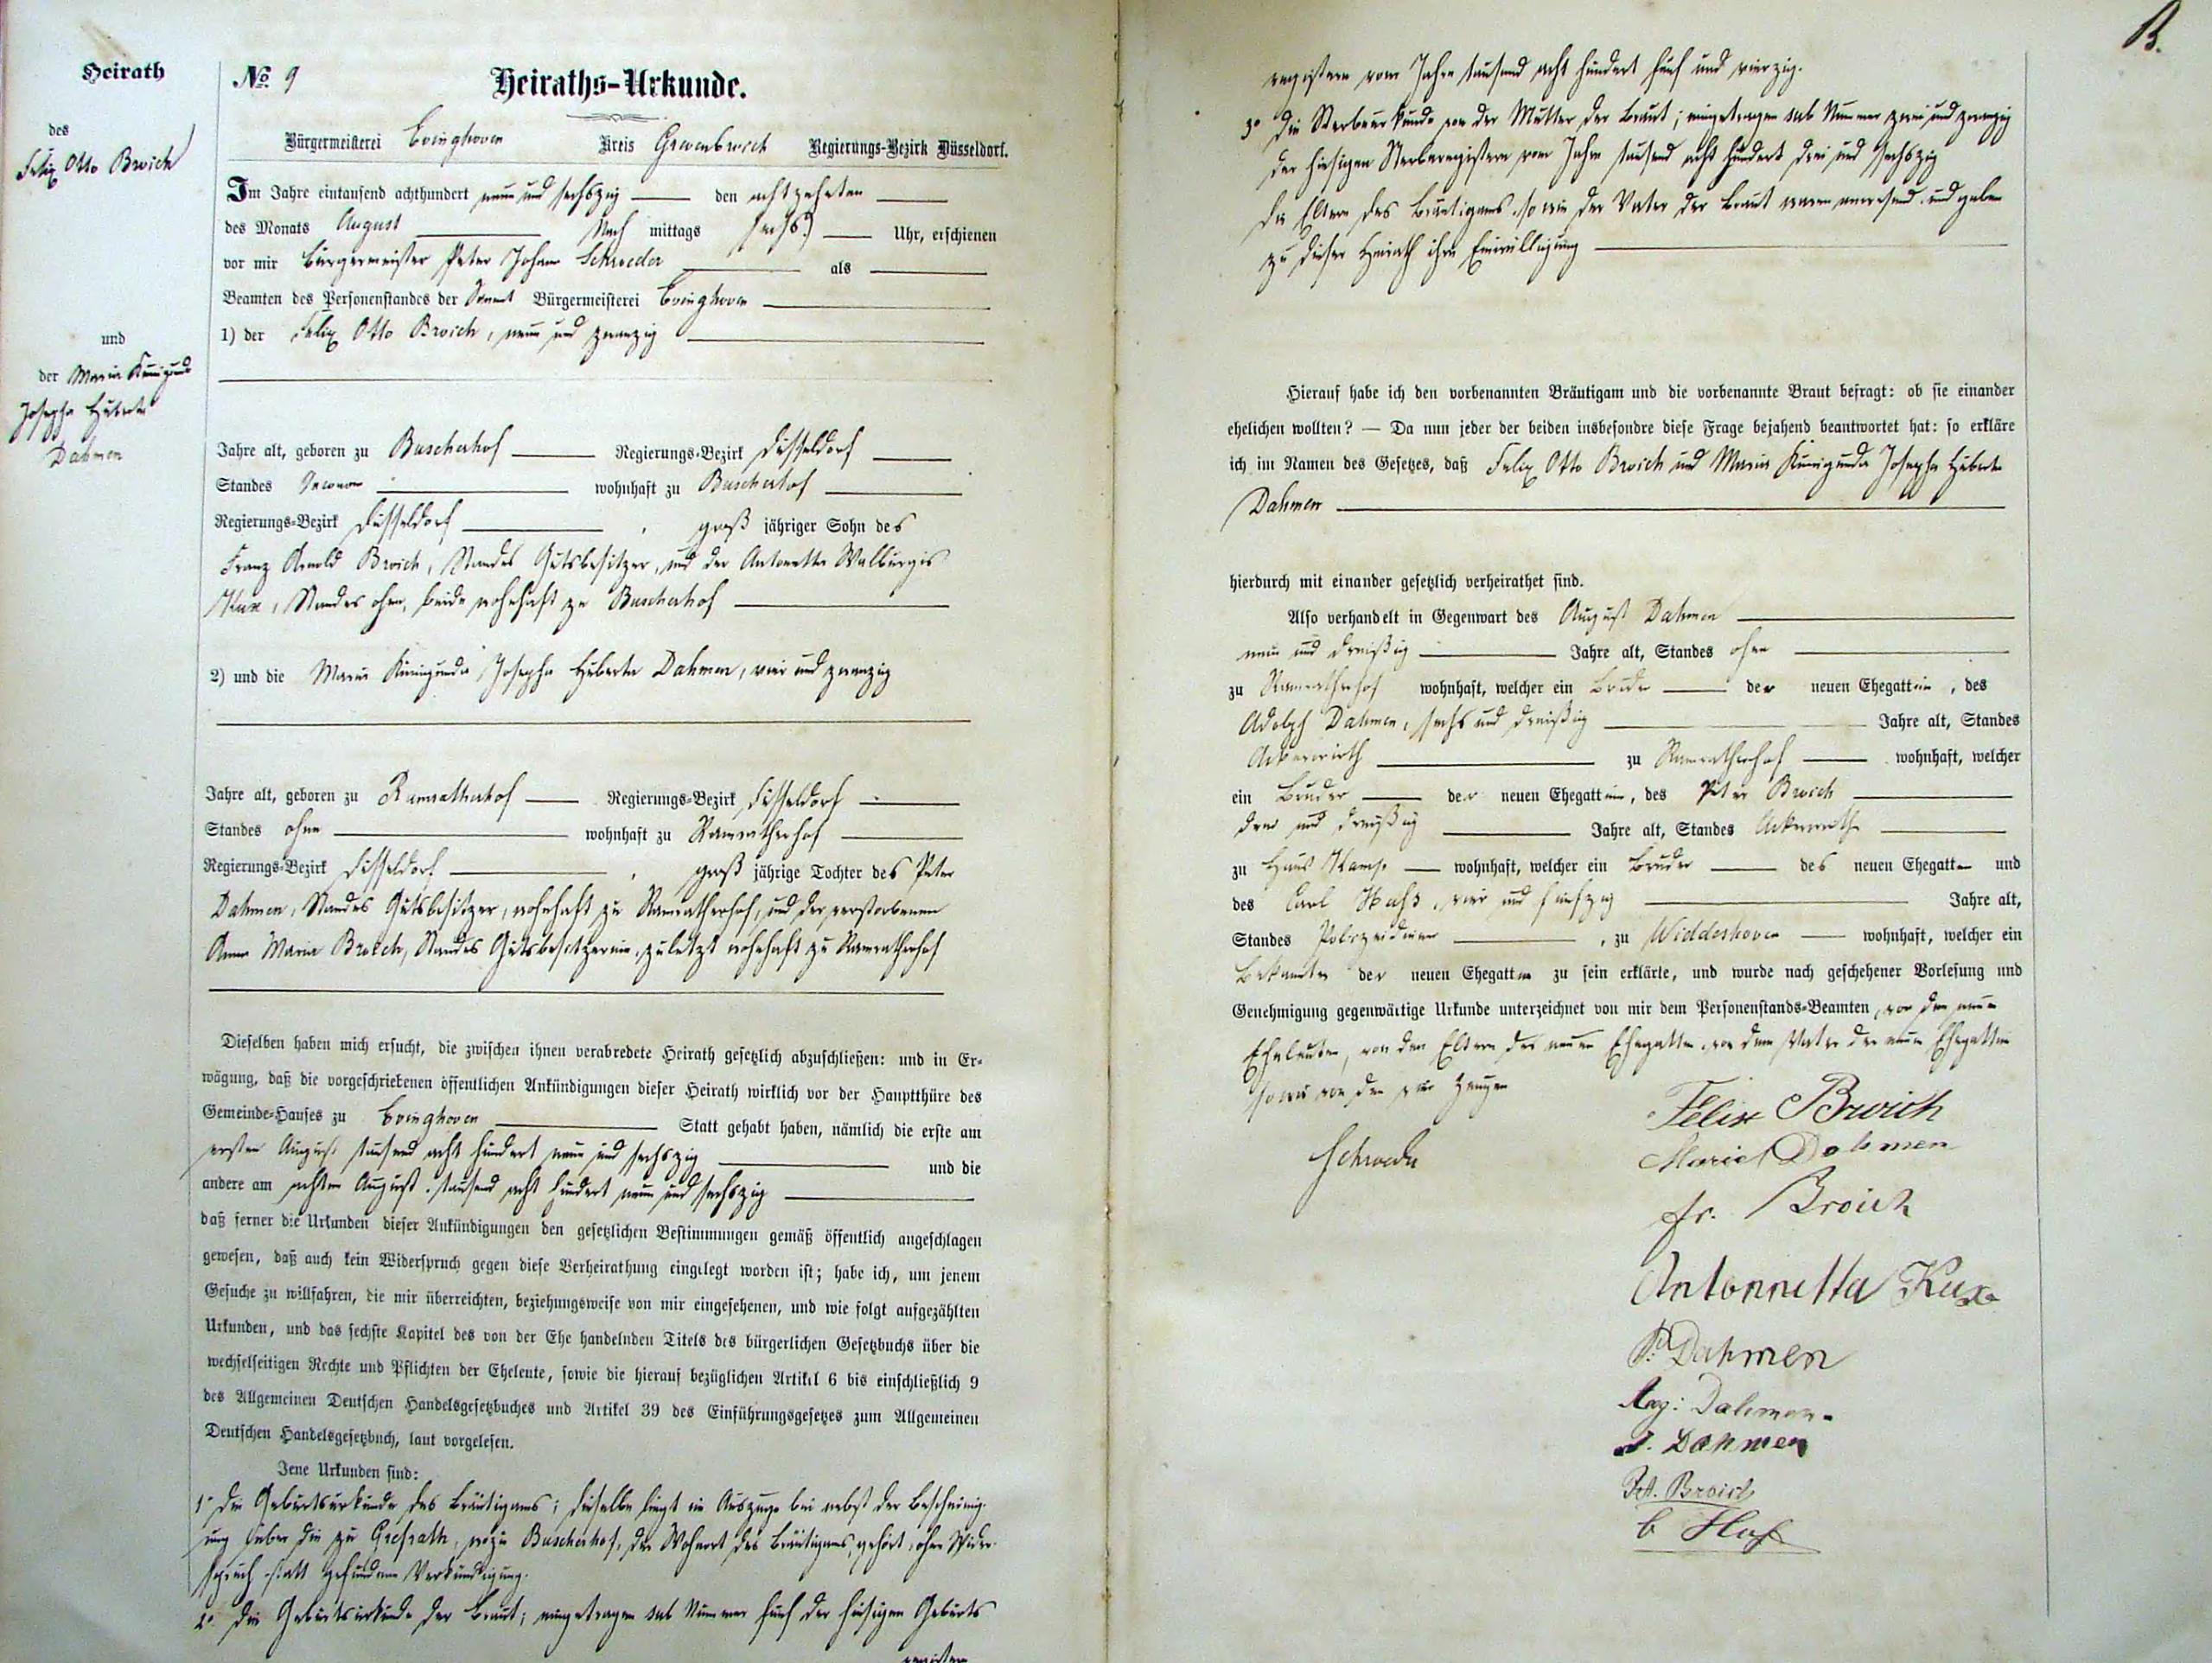 Heirath
des
Felix Otto Broich
und
der Maria Kunigunda
Josepha Huberta
Dahmen
No. 9
Heiraths-Urkunde.
Bürgermeisterei Evinghoven Kreis Grevenbroich Regierungs-Bezirk Düsseldorf.
Im Jahre eintausend achthundert neun und sechszig den achtzehnten
des Monats August Nach mittags sechs Uhr, erschienen
vor mir Bürgermeister Peter Johann Schroeder als
Beamten des Personenstandes der Bürgermeisterei Evinghoven
1) der Felix Otto Broich, neun und zwanzig
Jahre alt, geboren zu Buscherhof Regierungs-Bezirk Düsseldorf
Standes Oeconom wohnhaft zu Buscherhof
Regierungs-Bezirk Düsseldorf, groß jähriger Sohn des
Franz Arnold Broich, Standes Gutsbesitzer, und der Antonetta Walburgis
Kux, Standes ohne, beide wohnhaft zu Buscherhof
2) und die Maria Kunigunda Josepha Huberta Dahmen, vier und zwanzig
Jahre alt, geboren zu Ramratherhof Regierungs-Bezirk Düsseldorf
Standes ohne wohnhaft zu Ramratherhof
Regierungs-Bezirk Düsseldorf, groß jährige Tochter des Peter
Dahmen, Standes Gutsbesitzer, wohnhaft zu Ramratherhof, und der verstorbenen
Anna Maria Broich, Standes Gutsbesitzerin, zuletzt wohnhaft zu Ramratherhof
Dieselben haben mich ersucht, die zwischen ihnen verabredete Heirath gesetzlich abzuschließen: und in Er-
wägung, daß die vorgeschriebenen öffentlichen Ankündigungen dieser Heirath wirklich vor der Hauptthüre des
Gemeinde-Hauses zu Evinghoven Statt gehabt haben, nämlich die erste am
ersten August tausend acht hundert neun und sechszig und die
andere am achten August tausend acht hundert neun und sechszig
daß ferner die Urkunden dieser Ankündigungen den gesetzlichen Bestimmungen gemäß öffentlich angeschlagen
gewesen, daß auch kein Widerspruch gegen diese Verheirathung eingelegt worden ist; habe ich, um jenem
Gesuche zu willfahren, die mir überreichten, beziehungsweise von mir eingesehenen, und wie folgt aufgezählten
Urkunden, und das sechste Kapitel des von der Ehe handelnden Titels des bürgerlichen Gesetzbuchs über die
wechselseitigen Rechte und Pflichten der Eheleute, sowie die hierauf bezüglichen Artikel 6 bis einschließlich 9
des Allgemeinen Deutschen Handelsgesetzbuches und Artikel 39 des Einführungsgesetzes zum Allgemeinen
Deutschen Handelsgesetzbuch, laut vorgelesen.
Jene Urkunden sind:
1° die Geburtsurkunde des Bräutigams; dieselbe liegt im Auszuge bei nebst der Bescheinig-
ung über die zu Grefrath, wozu Buscherhof, der Wohnort des Bräutigams, gehört, ohne Wider-
spruch statt gefundene Verkündigung.
2° die Geburtsurkunde der Braut; eingetragen sub Nummer fünf der hiesigen Geburts
registern
B.
registern vom Jahre tausend acht hundert fünf und vierzig.
3° die Sterbeurkunde von der Mutter der Braut; eingetragen sub Nummer zwei und zwanzig
der hiesigen Sterberegistern vom Jahre tausend acht hundert drei und sechszig
Die Eltern des Bräutigams, so wie der Vater der Braut waren anwesend und gaben
zu dieser Heirath ihre Einwilligung
Hierauf habe ich den vorbenannten Bräutigam und die vorbenannte Braut befragt: ob sie einander
ehelichen wollten? — Da nun jeder der beiden insbesondre diese Frage bejahend beantwortet hat: so erkläre
ich im Namen des Gesetzes, daß Felix Otto Broich und Maria Kunigunda Josepha Huberta
Dahmen
hierdurch mit einander gesetzlich verheirathet sind.
Also verhandelt in Gegenwart des August Dahmen
neun und dreißig Jahre alt, Standes ohne
zu Ramratherhof wohnhaft, welcher ein Bruder der neuen Ehegattin, des
Adolph Dahmen, sechs und dreißig Jahre alt, Standes
Ackerwirth zu Ramratherhof wohnhaft, welcher
ein Bruder der neuen Ehegattin, des Peter Broich
drei und dreißig Jahre alt, Standes Ackerwirth
zu Haus Kamp wohnhaft, welcher ein Bruder des neuen Ehegatten und
des Carl, vier und fünfzig Jahre alt,
Standes Polizeidiener, zu Widdeshoven wohnhaft, welcher ein
Bekannter der neuen Ehegatten zu sein erklärte, und wurde nach geschehener Vorlesung und
Genehmigung gegenwärtige Urkunde unterzeichnet von mir dem Personenstands-Beamten, von den neuen
Eheleuten, von den Eltern des neuen Ehegatten, von dem Vater der neuen Ehegattin
sowie von den vier Zeugen
Schroeder
Felix Broich
Maria Dahmen
Fr. Broich
Antonnetta Kux
P. Dahmen
Aug: Dahmen
A. Dahmen
Pet. Broich